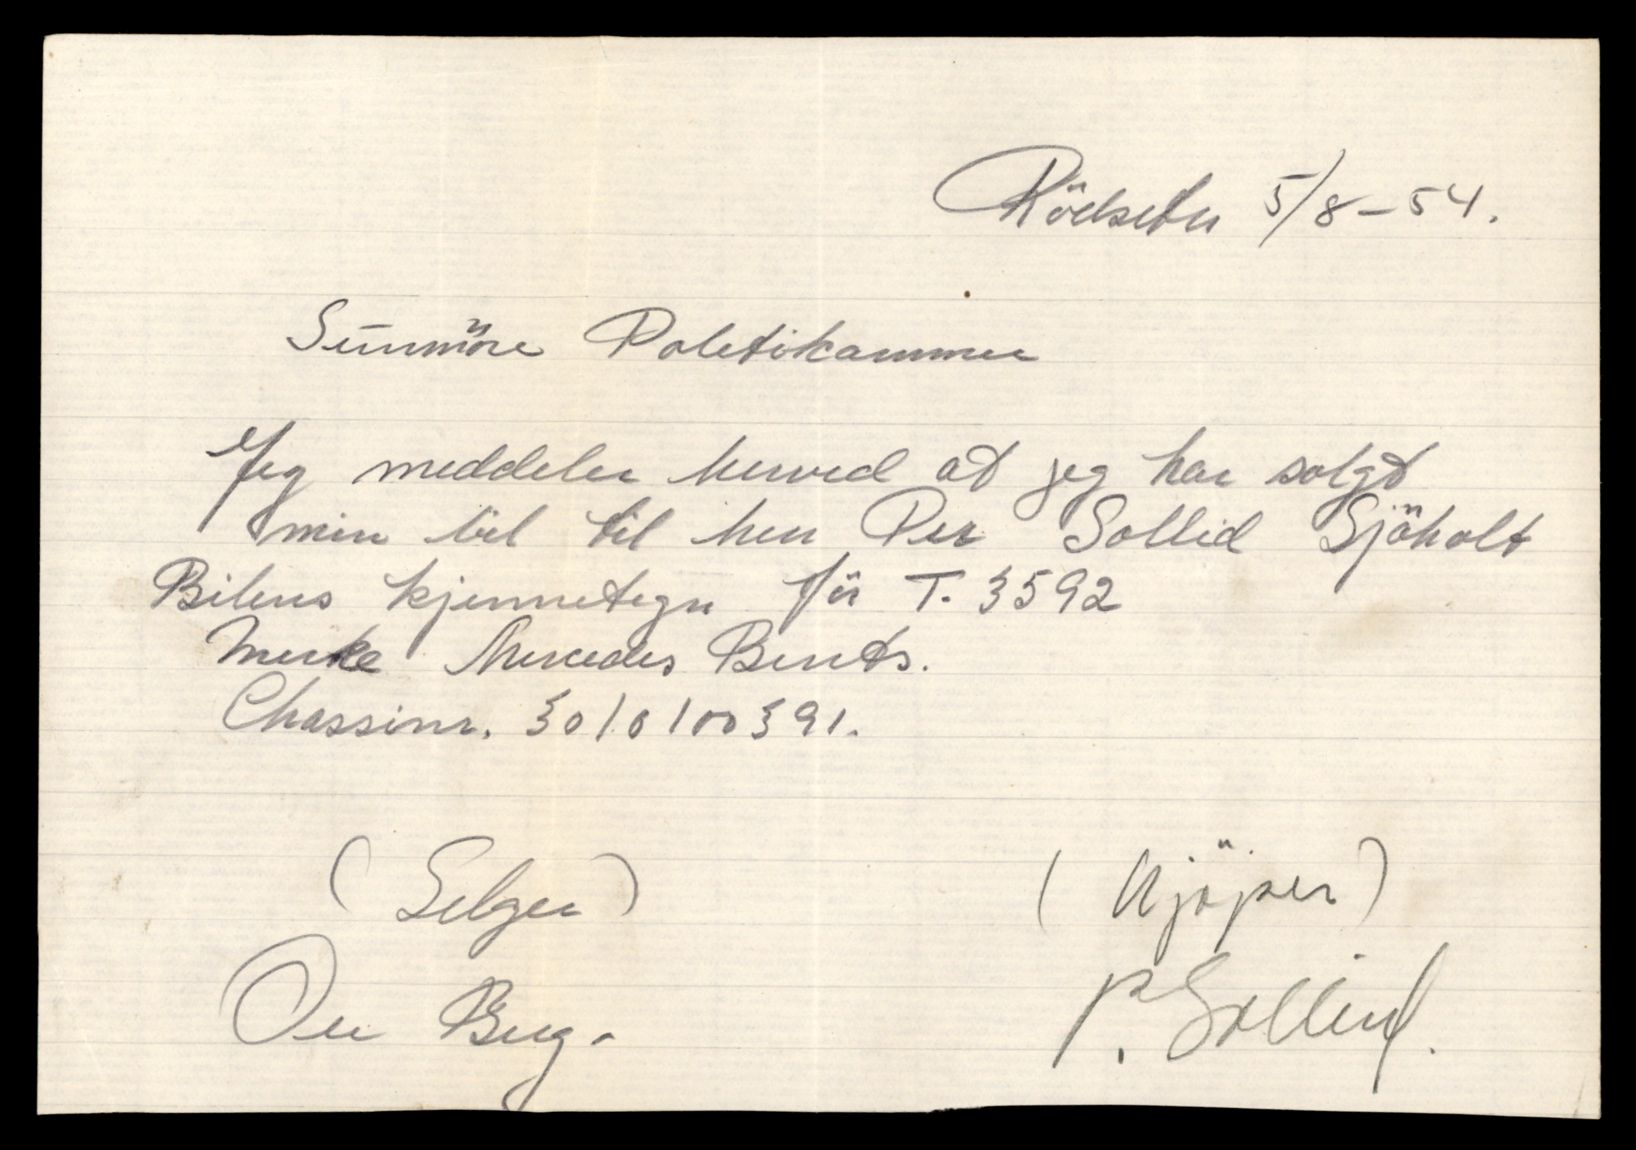 5/8-54.
Sunnmöre Politikammer
Jeg meddeler herved at jeg har solgt
min bil til herr Per Sollid Sjöholt
Bilens kjennetegn för T. 3592
Merke Mercedes Bents.
Chassinr. 3010100391.
(Selger) (Kjöper)
Berg. P. Sollid.